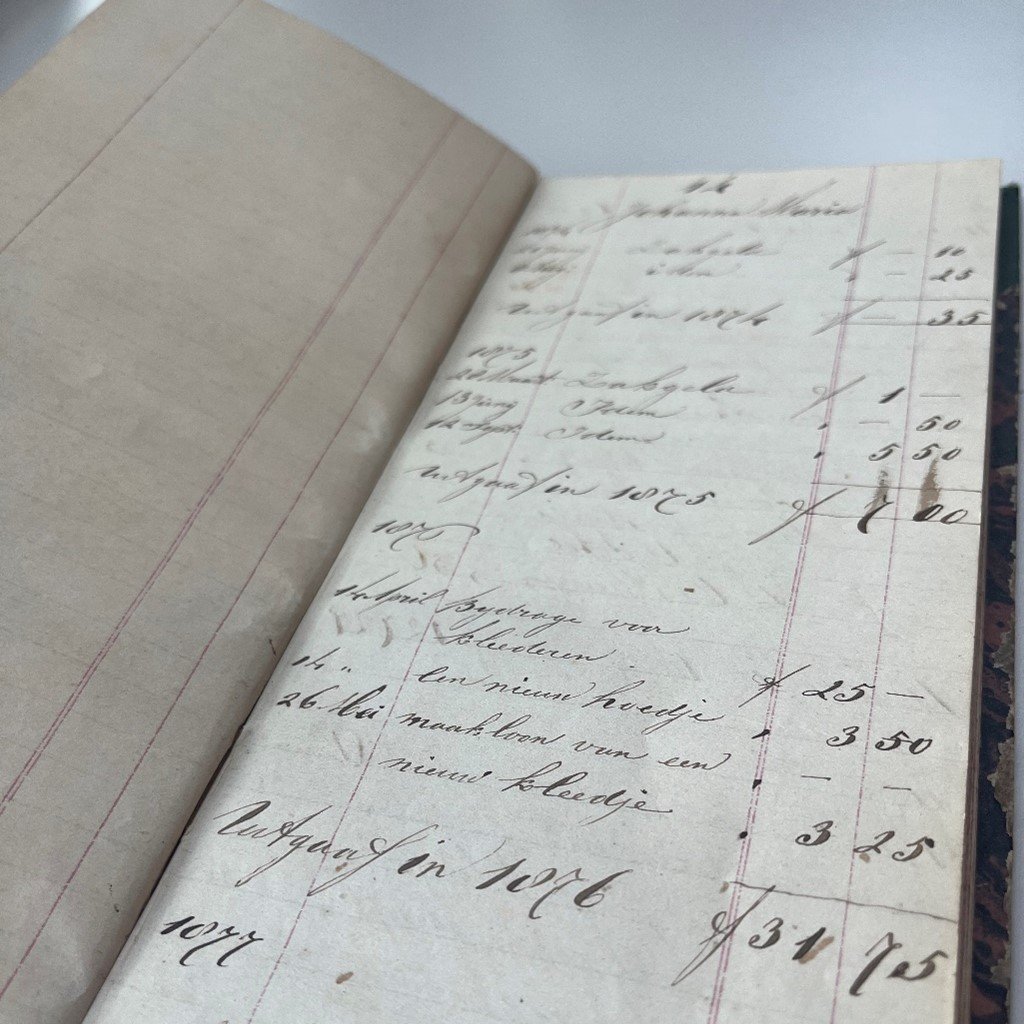 14
Johanna Maria
Zakgeld f — 10
idem " — 25
Uitgaaf in 1874 f — 35
1875
Zakgeld f 1 —
13 Aug Idem " — 50
14 Sept Idem " 5 50
Uitgaaf in 1875 f 7 00
1876
14 April Bydrage voor
kleederen f 25 —
14 " Een nieuw hoedje " 3 50
26 Mei maakloon van een " — —
nieuw kleedje " 3 25
Uitgaaf in 1876 f 31 75
1877